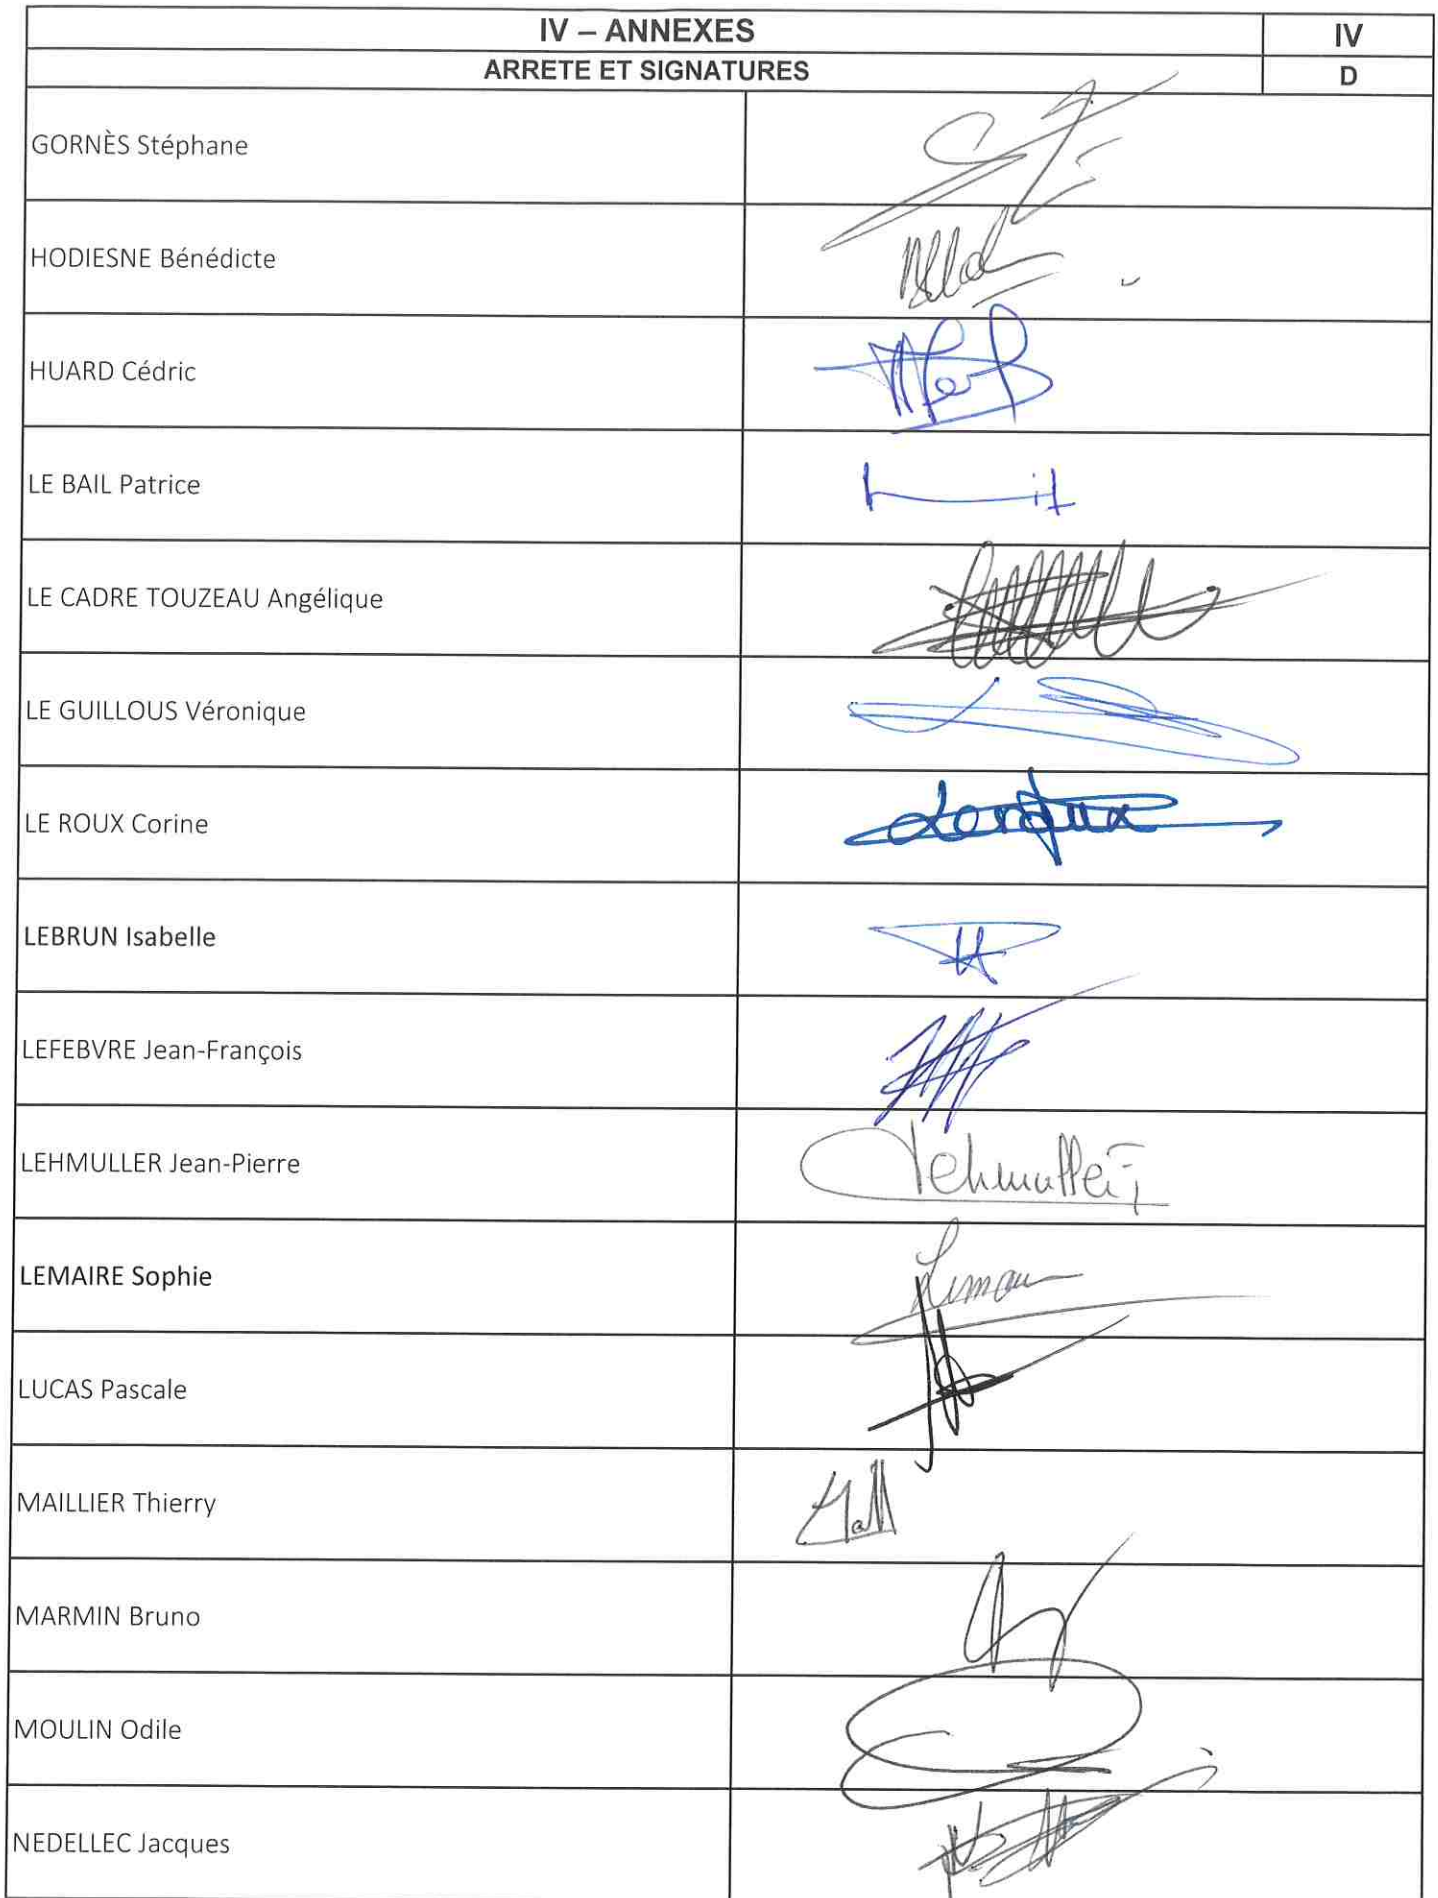 IV – ANNEXES
IV
ARRETE ET SIGNATURES
D
GORNÈS Stéphane
HODIESNE Bénédicte
HUARD Cédric
LE BAIL Patrice
LE CADRE TOUZEAU Angélique
LE GUILLOUS Véronique
LE ROUX Corine
LEBRUN Isabelle
LEFEBVRE Jean-François
LEHMULLER Jean-Pierre
Lehmuller
LEMAIRE Sophie
LUCAS Pascale
MAILLIER Thierry
MARMIN Bruno
MOULIN Odile
NEDELLEC Jacques